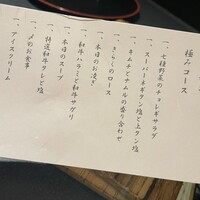 極みコース
一、七種野菜のチョレギサラダ
一、スーパーネギタン塩と上タン塩
一、キムチとナムルの盛り合わせ
一、きらくのロース
一、本日のお凌ぎ
一、和牛ハラミと和牛サガリ
一、本日のスープ
一、特選和牛タレと塩
一、〆のお食事
一、アイスクリーム